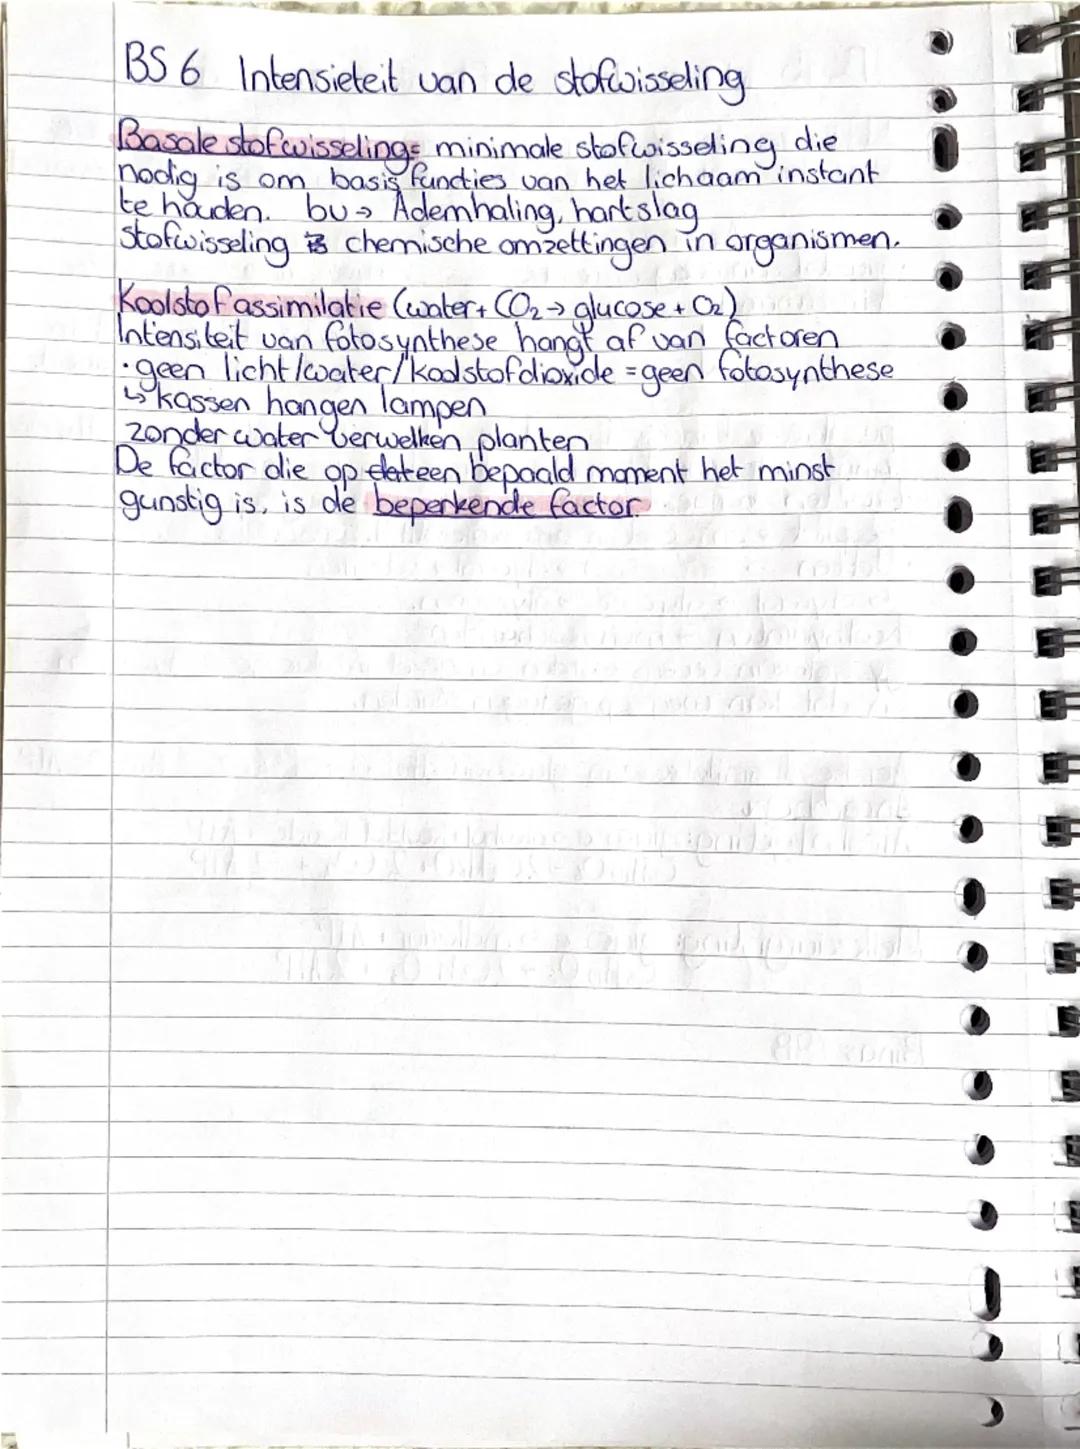 BS 6 Intensieteit van de stofwisseling
Basale stofwisseling= minimale stofwisseling die
nodig is om basis functies van het lichaam instant
te houden. bv → Ademhaling, hartslag
stofwisseling = chemische omzettingen in organismen.
Koolstofassimilatie (water + CO₂ → glucose + O₂)
Intensiteit van fotosynthese hangt af van factoren
· geen licht/water/koolstofdioxide = geen fotosynthese
↳ kassen hangen lampen
zonder water verwelken planten
De factor die op een bepaald moment het minst
gunstig is, is de beperkende factor.
Binas 68B